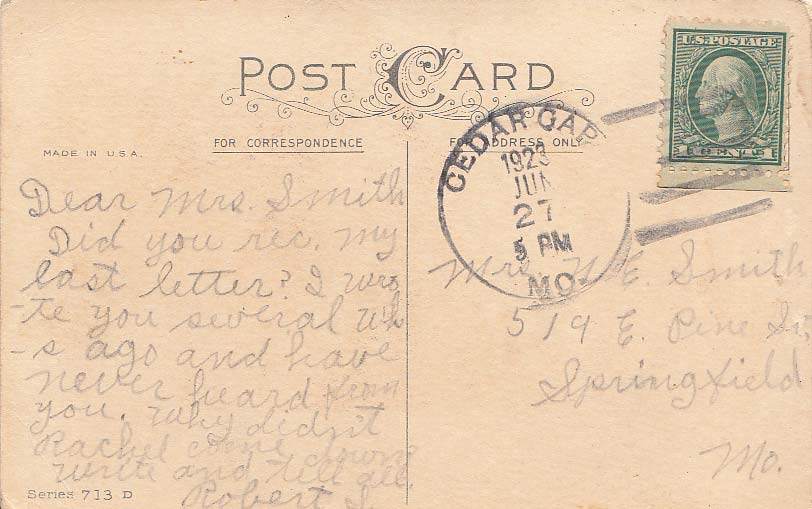 POST CARD
FOR CORRESPONDENCE
FOR ADDRESS ONLY
MADE IN U.S.A.
U.S. POSTAGE
1 CENT 1
CEDAR GAP
1923
JUN
27
5 PM
MO.
Dear Mrs. Smith
Did you rec. my
last letter? I wro
-te you several wk
-s ago and have
never heard from
you. Why didn't
Rachel come down
write and tell all.
Robert S.
Mrs. E. Smith
519 E. Pine St.
Springfield
Mo.
Series 713 D